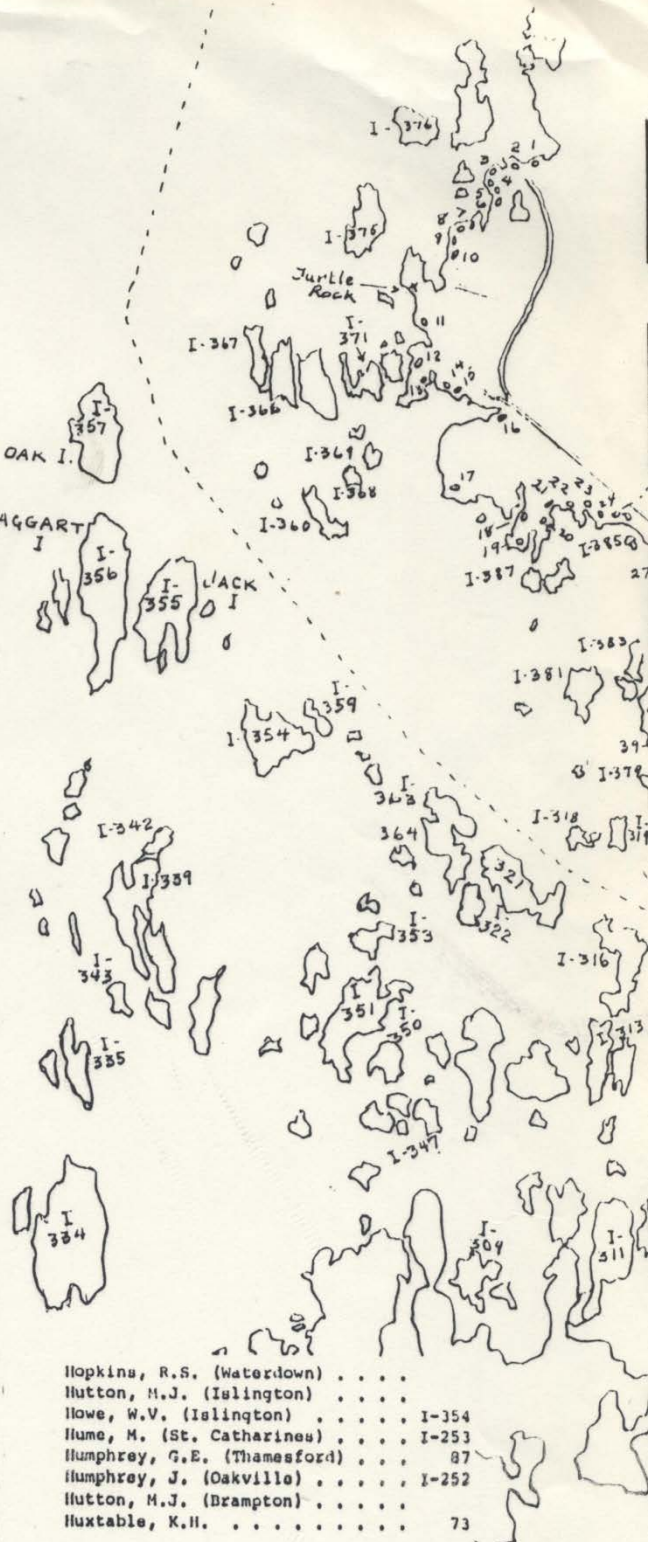 I-376
3 2 1
4
5
6
7
8
9
10
I-375
Turtle
Rock
11
I-
371
I-367
12
13
14
15
I-366
16
I-
357
OAK I.
I-369
I-368
17
I-360
18
19
20
21
22
23
24
I-385
I-387
27
AGGART
I
I-
356
I-
355
JACK
I
I-383
I-381
I-
359
I-354
39
I-379
I-
363
364
I-318
I-
319
I-342
I-339
321
I-
322
I-
353
I-316
I-
343
I
351
I-
350
I-
313
I-
335
I-347
I
334
I-
309
I-
311
Hopkins, R.S. (Waterdown) . . . .
Hutton, M.J. (Islington) . . . .
Howe, W.V. (Islington) . . . . . I-354
Hume, M. (St. Catharines) . . . . I-253
Humphrey, G.E. (Thamesford) . . . 87
Humphrey, J. (Oakville) . . . . . I-252
Hutton, M.J. (Brampton) . . . . .
Huxtable, K.H. . . . . . . . . . 73